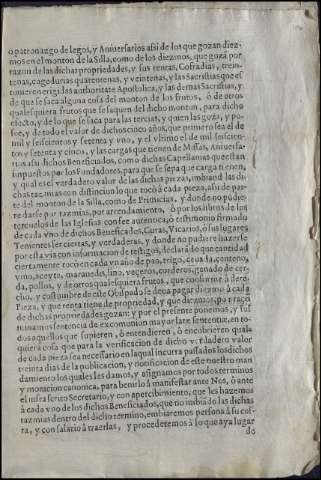 o patronazgo de legos, y Aniuersarios assi de los que gozan diez-
mos en el monton de la Silla, como de los diezmos, que gozã por
razon de las dichas propriedades, y sus rentas, Cofradias, trein-
tenas, cogedurias quarentenas, y veintenas, y las Sacristias que es
tuuieren erigidas authoritate Apostolica, y las demas Sacristias, y
de que se saca alguna cosa del monton de los frutos, ò de otros
qualesquiera frutos que se saquen del dicho monton, para dicho
efecto, y de lo que se saca para las tercias, y quien las goza, y pos-
see, y de todo el valor de dichos cinco años, que primero sea el de
mil y seiscientos y setenta y vno, y el vltimo el de mil seiscien-
tos y setenta y cinco, y las cargas que tienen de Missas, Aniuersa-
rios assi dichos Beneficiados, como dichas Capellanias que estan
impuestos por los Fundadores, para que se sepa que carga tienen,
y qual es el verdadero valor de las dichas piezas, imbiará las di-
chas tazmias con distincion lo que tocò à cada pieza, assi de par-
te del monton de la Silla, como de Primicias, y donde no pudie-
re darse por tazmias, por arrendamiento, ò por los libros de los
terçuelos de las Iglesias con fee autentica, ò testimonio firmado
de cada vno de dichos Beneficiados, Curas, Vicarios, ò sus lugares
Tenientes ser ciertas, y verdaderas, y donde no pudiere hazerse
por esta via con informacion de testigos, declarãdo que cantidad
ciertamente tocò en cada vn año de pan, trigo, ceuada, centeno,
vino, azeyte, marauedis, lino, vezeros, corderos, ganado de cer-
da, pollos, y de otros qualesquiera frutos, que conforme à dere-
cho, y costumbre de este Obispado se deua pagar diezmo à cada
Pieza, y que renta tiene de propriedad, y que diezmos, pa razõ
de dichas propriedades gozan: y por el presente ponemos, y ful
minamos sentencia de excomunion mayor latæ sententiæ, en to-
dos aquellos que supieren, ò entendieren, ò encubrieren quala
quiera cosa que para la verificacion de dicho verdadero valor
de cada pieza sea necessario en la qual incurra passados los dichos
treinta dias de la publicacion, y notificacion de este nuestro man
damiento los quales les damos, y assignamos por todos terminos
y monicion canonica, para venirlo à manifestar ante Nos, ò ante
el infraescrito Secretario, y con apercibimiento, que les hazemos
à cada vno de los dichos Beneficiados, que no imbiãdo las dichas
tazmias dentro del dicho termino, embiaremos persona à su cos-
ta, y con salario à traerlas, y procederemos à lo que aya lugar
do